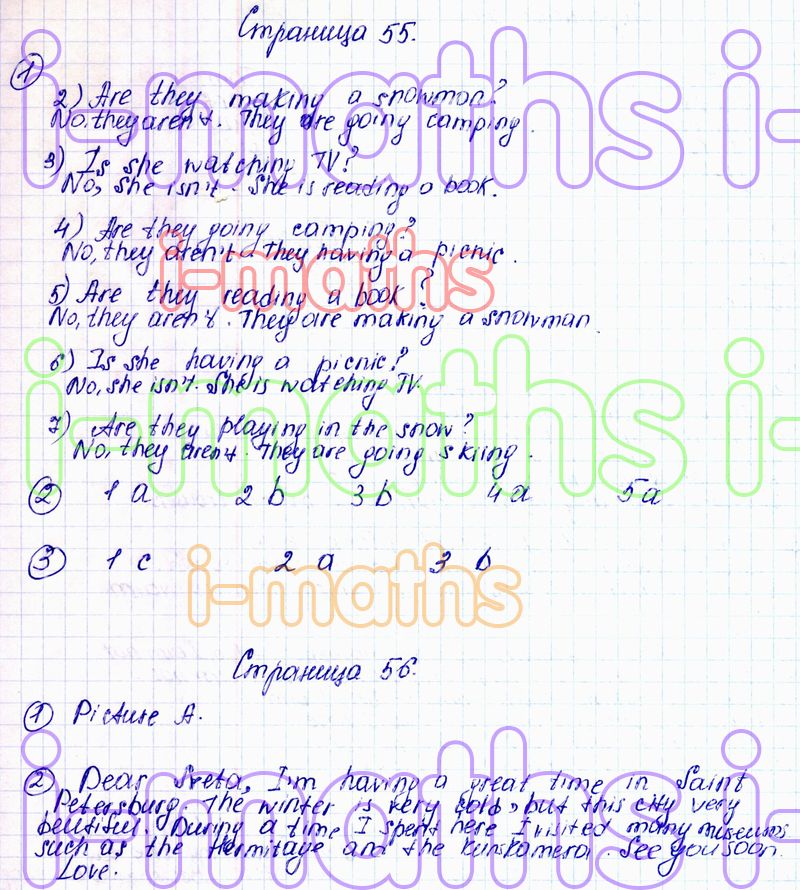 Страница 55.
1
2) Are they making a snowman?
No, they aren't. They are going camping.
3) Is she watching TV?
No, she isn't. She is reading a book.
4) Are they going camping?
No, they aren't. They having a picnic.
5) Are they reading a book?
No, they aren't. They are making a snowman.
6) Is she having a picnic?
No, she isn't. She is watching TV.
7) Are they playing in the snow?
No, they aren't. They are going skiing.
2 1 a 2 b 3 b 4 a 5 a
3 1 c 2 a 3 b
Страница 56.
1 Picture A.
2 Dear Sveta, I'm having a great time in Saint
Petersburg. The winter is very cold, but this city very
beutiful. During a time I spent here I visited many museums
such as the Hermitage and the Kunskamera. See you soon.
Love.
i-maths i-
i-maths
i-maths i-
i-maths
i-maths i-